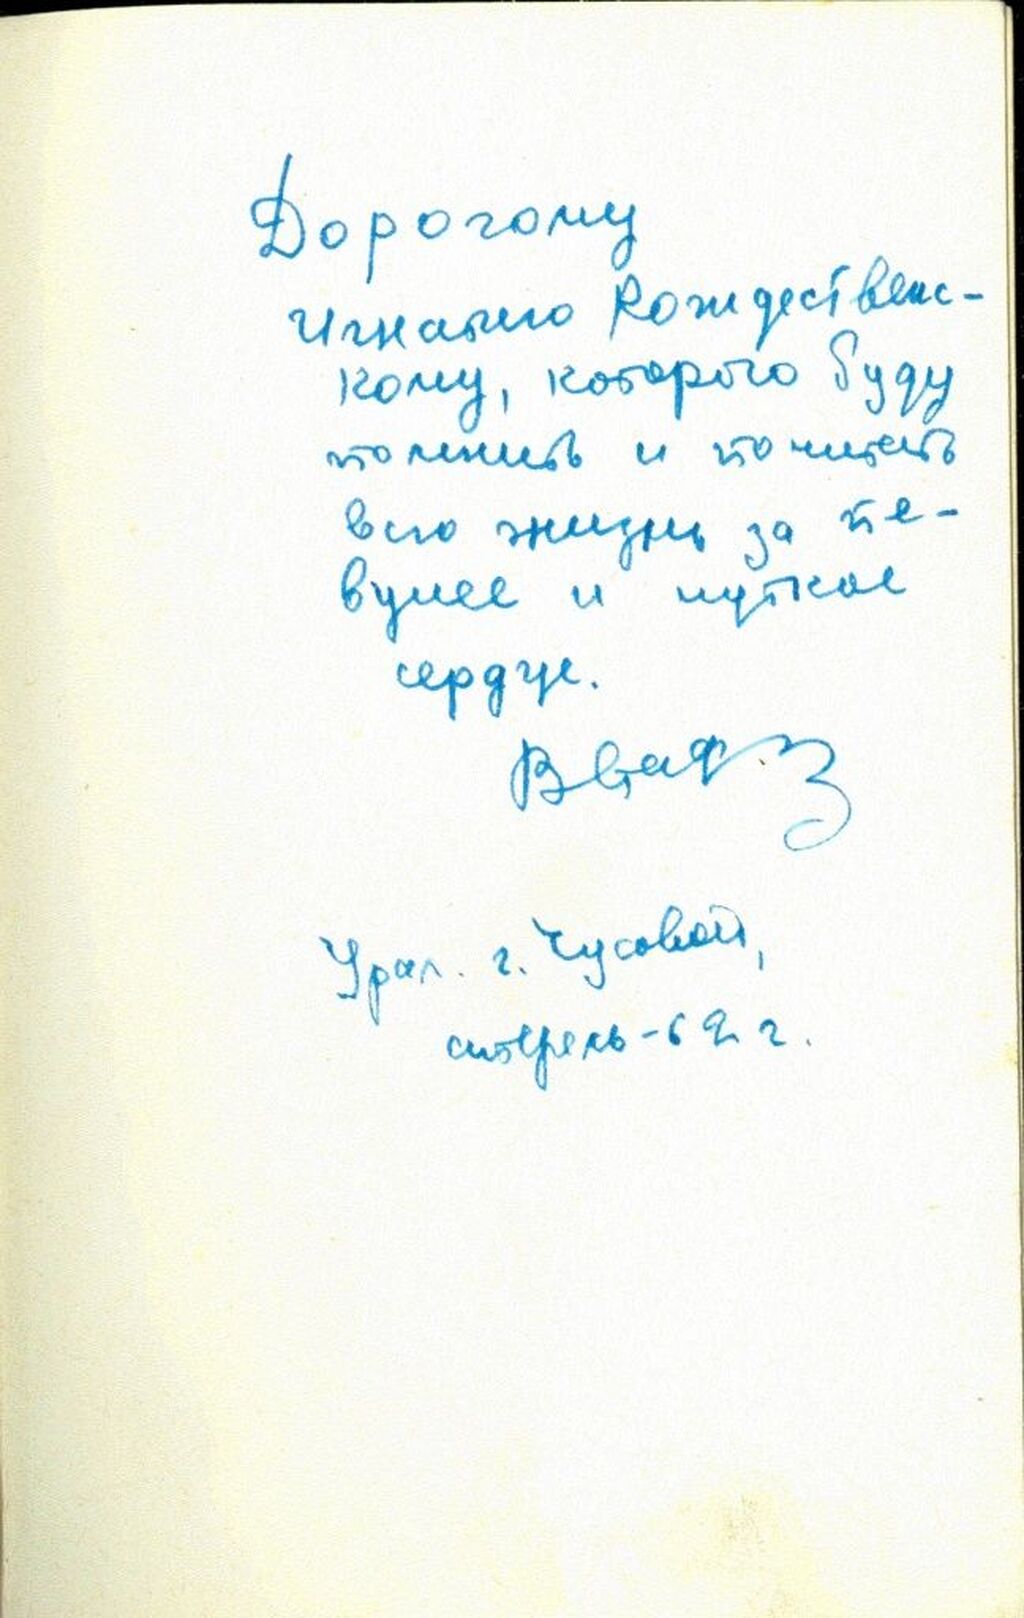 Дорогому
Игнатию Рождественс-
кому, которого буду
помнить и почитать
всю жизнь за пе-
вучее и чуткое
сердце.
Урал. г. Чусовой,
апрель-62 г.